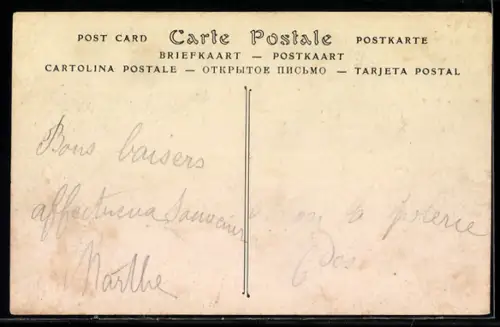 POST CARD Carte Postale POSTKARTE
BRIEFKAART — POSTKAART
CARTOLINA POSTALE — ОТКРЫТОЕ ПИСЬМО — TARJETA POSTAL
Bons baisers
affectueux Souvenir
Marthe